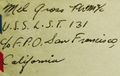 Mel Gross PhM1/c
U.S.S. L.S.T. 131
c/o F.P.O. San Francisco
California